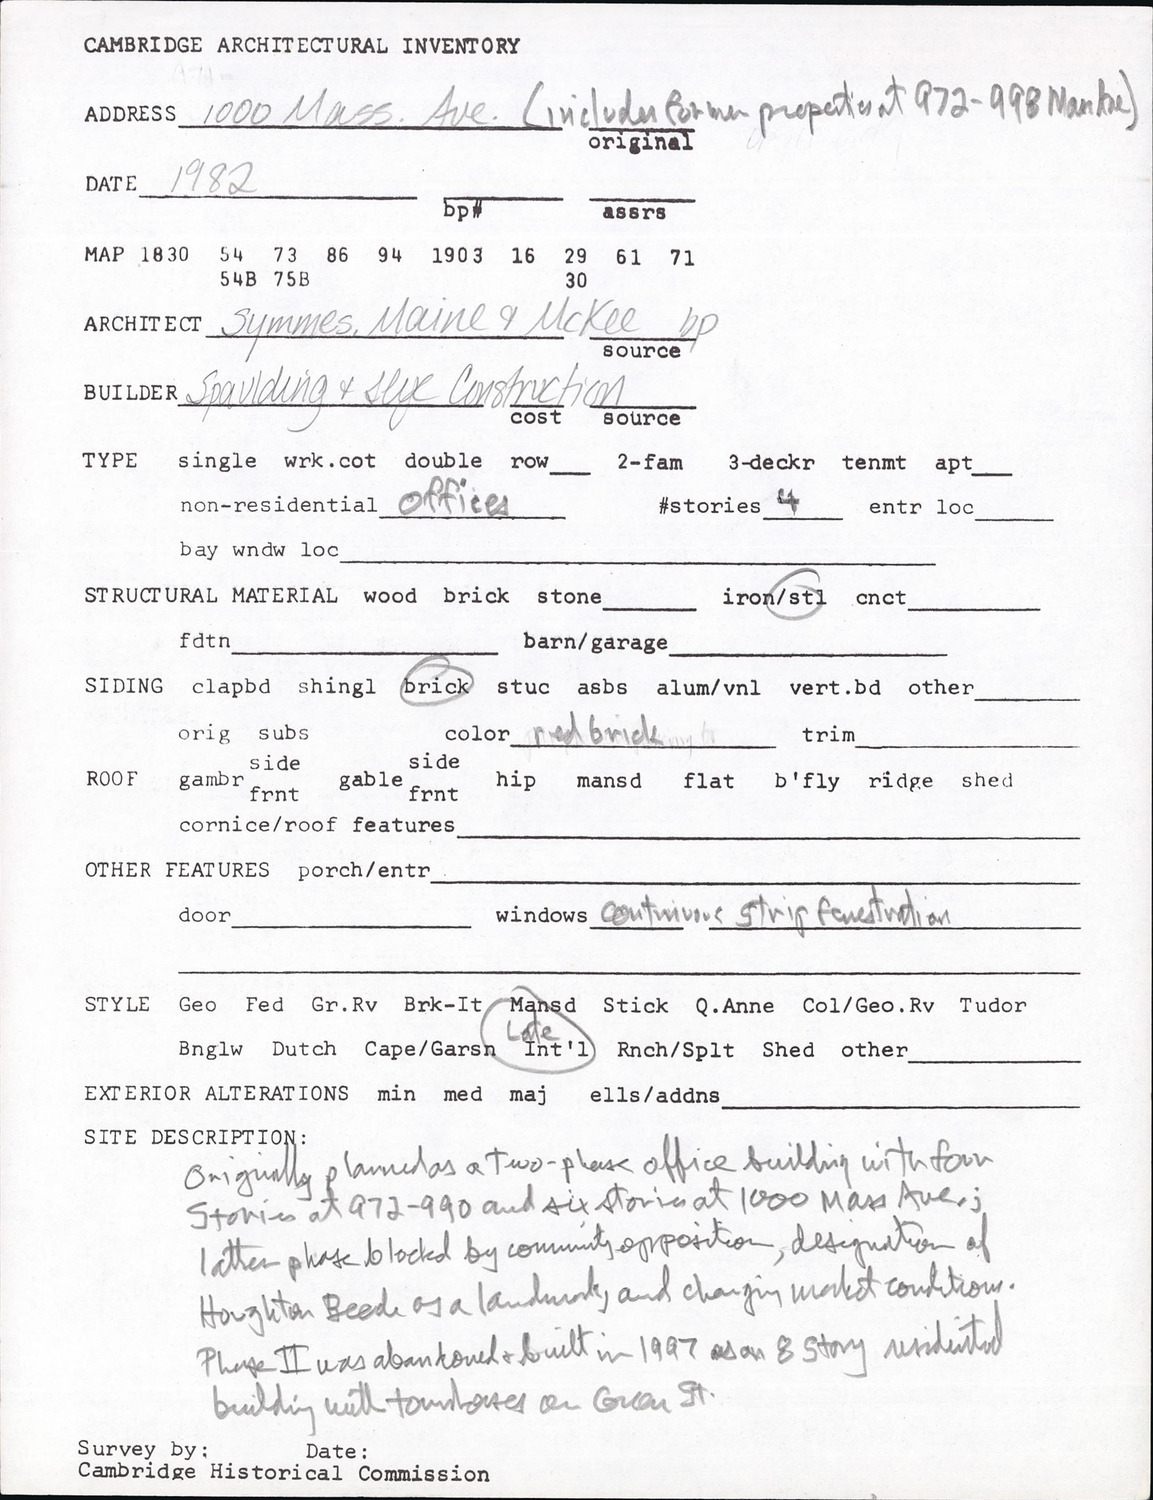 CAMBRIDGE ARCHITECTURAL INVENTORY
ADDRESS 1000 Mass. Ave. (includes former properties at 972-998 Mass Ave)
original
DATE 1982
bp# assrs
MAP 1830 54 73 86 94 1903 16 29 61 71
54B 75B 30
ARCHITECT Symmes, Maine & McKee bp
source
BUILDER Spaulding & Slye Construction
cost source
TYPE single wrk.cot double row 2-fam 3-deckr tenmt apt
non-residential offices #stories 4 entr loc
bay wndw loc
STRUCTURAL MATERIAL wood brick stone iron/stl cnct
fdtn barn/garage
SIDING clapbd shingl brick stuc asbs alum/vnl vert.bd other
orig subs color red brick trim
side side
ROOF gambr gable hip mansd flat b'fly ridge shed
frnt frnt
cornice/roof features
OTHER FEATURES porch/entr
door windows continuous strip fenestration
STYLE Geo Fed Gr.Rv Brk-It Mansd Stick Q.Anne Col/Geo.Rv Tudor
Late
Bnglw Dutch Cape/Garsn Int'l Rnch/Splt Shed other
EXTERIOR ALTERATIONS min med maj ells/addns
SITE DESCRIPTION:
Originally planned as a two-phase office building with four
stories at 972-990 and six stories at 1000 Mass Ave.;
latter phase blocked by community opposition, designation of
Houghton Beede as a landmark, and changing market conditions.
Phase II was abandoned & built in 1997 as an 8 story residential
building with townhouses on Green St.
Survey by: Date:
Cambridge Historical Commission